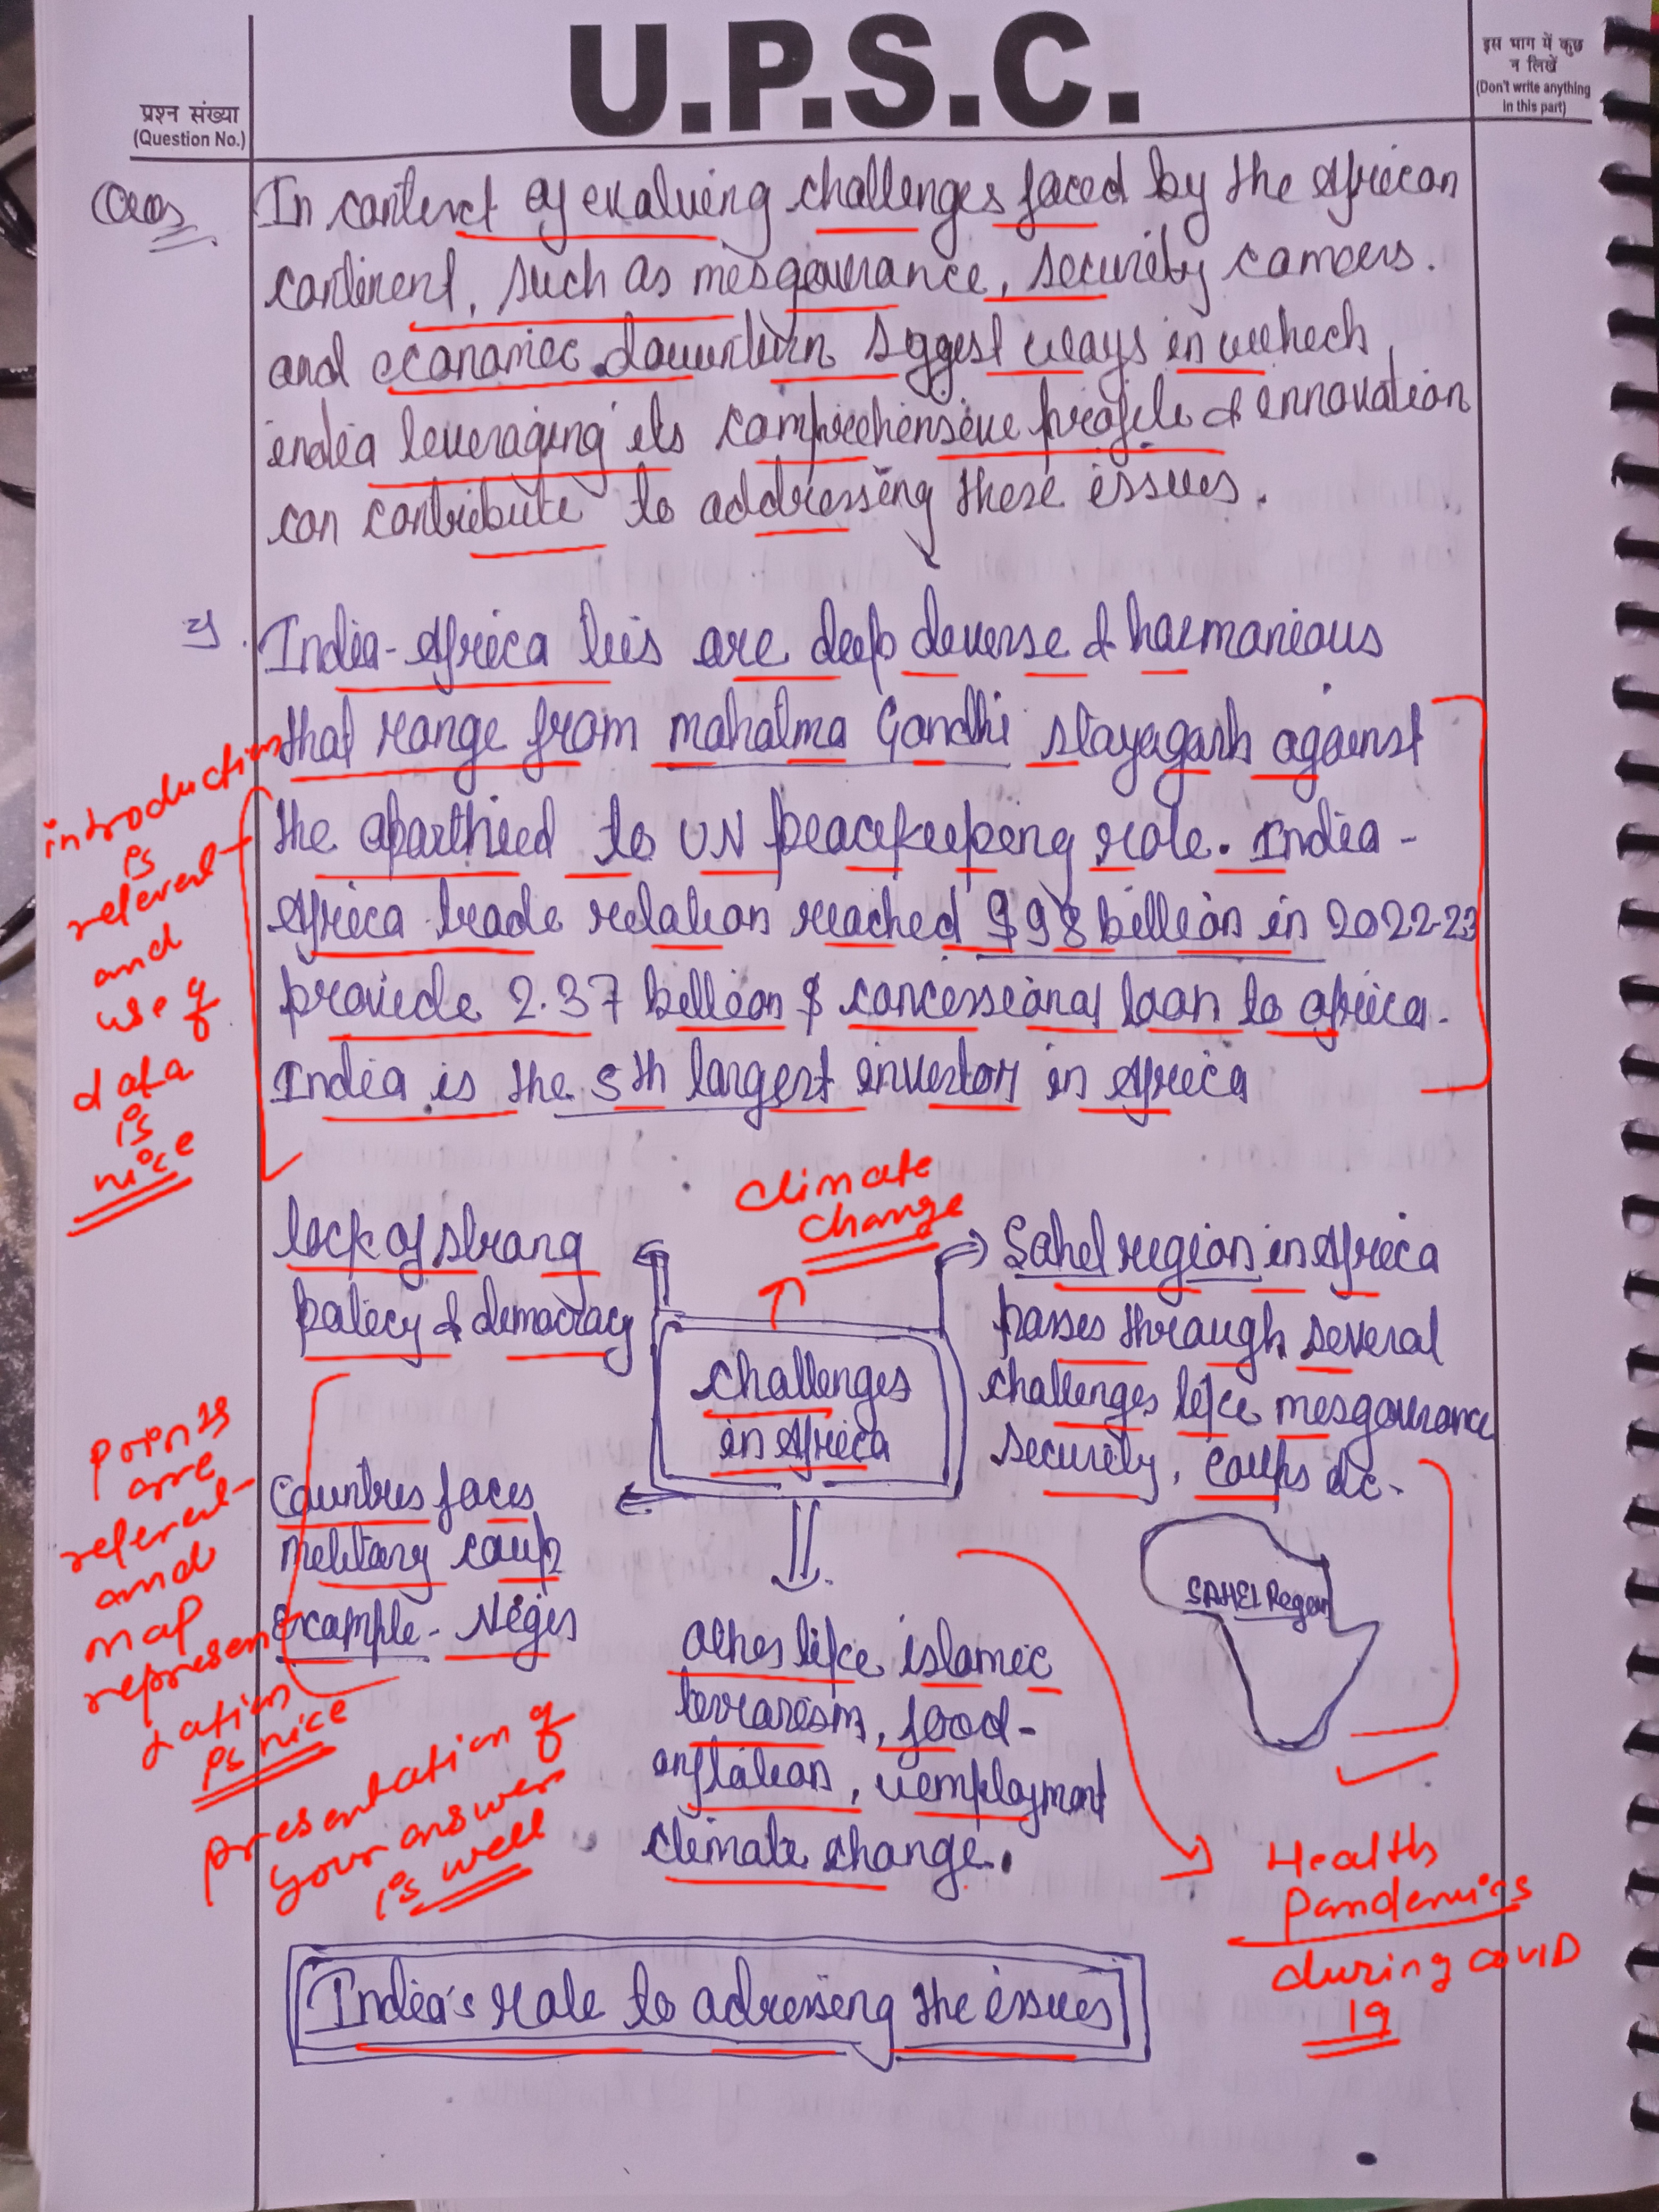 U.P.S.C.
प्रश्न संख्या
(Question No.)
इस भाग में कुछ
न लिखें
(Don't write anything
in this part)
Ques
In context of evolving challenges faced by the African
continent, such as mesgoverance, security
and economic downturn sggest ways in which
india leveraging its comprehensive profile & innovation
can contribute to addressing these issues.
India-Africa ties are deep diverse & harmonious
that range from mahatma Gandhi stayagarh against
the apartheid to UN peacekeeping role. India-
Africa trade relation reached $98 billion in 2022-23
provide 2.37 billion $ concessional loan to africa.
India is the 5th largest investor in Africa
introduction
is
relevent
and
use of
data
is
nice
climate
change
lack of strong
policy & democracy
Challenges
in Africa
Sahel region in Africa
passes through several
challenges like mesgoverance
security, coups etc.
SAHEL Region
Countries faces
military coup
Example - Niger
Points
are
relevent
and
map
represen
tation
is nice
others like islamic
terrorism, food-
inflation, unemployment
climate change.
presentation of
your answer
is well
Health
Pandemics
during COVID
19
India's role to adressing the issues